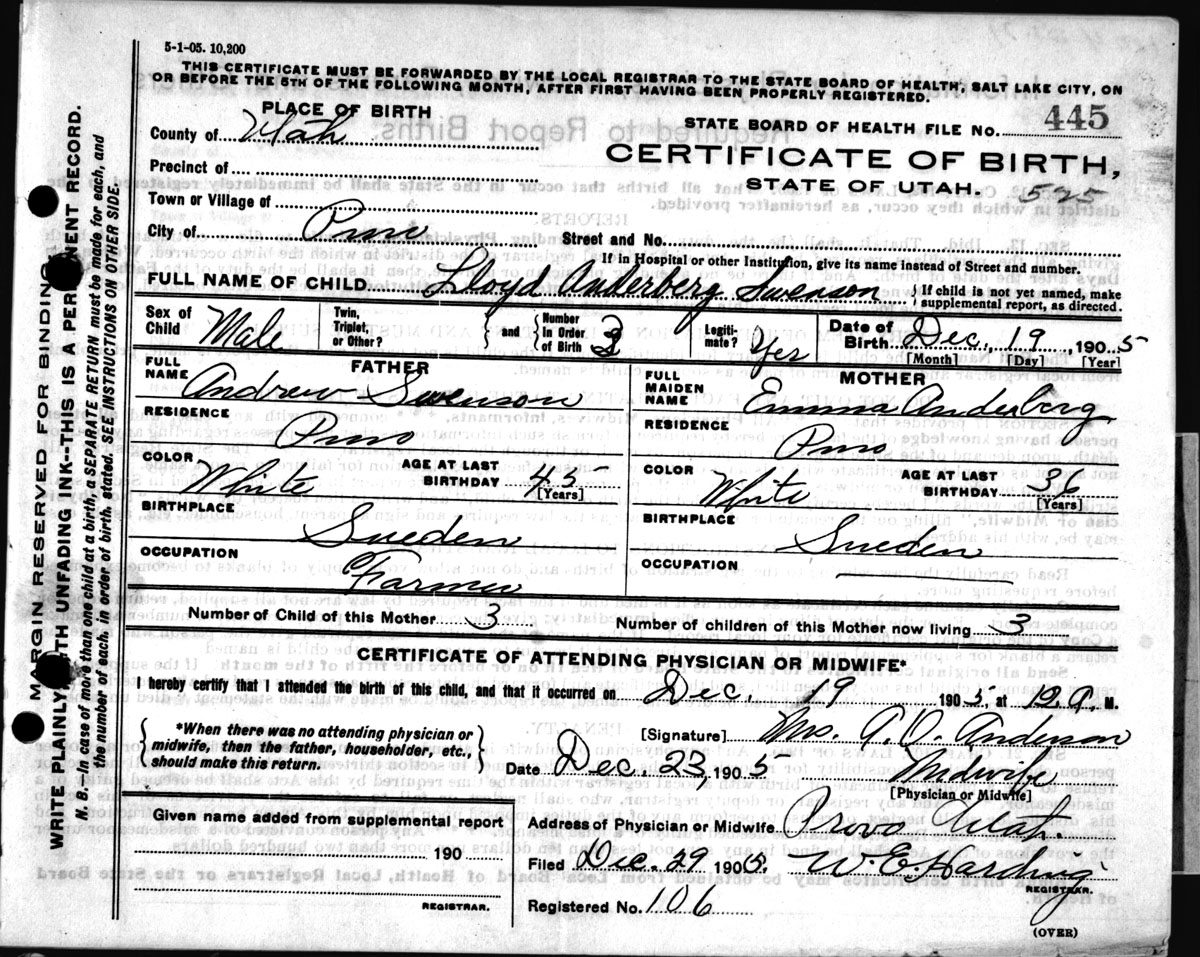 5-1-05. 10,200
THIS CERTIFICATE MUST BE FORWARDED BY THE LOCAL REGISTRAR TO THE STATE BOARD OF HEALTH, SALT LAKE CITY, ON
OR BEFORE THE 5TH OF THE FOLLOWING MONTH, AFTER FIRST HAVING BEEN PROPERLY REGISTERED.
PLACE OF BIRTH
STATE BOARD OF HEALTH FILE No. 445
County of Utah
CERTIFICATE OF BIRTH,
Precinct of
STATE OF UTAH. 525
Town or Village of
City of Provo Street and No.
If in Hospital or other Institution, give its name instead of Street and number.
FULL NAME OF CHILD. Lloyd Anderberg Swenson { If child is not yet named, make supplemental report, as directed.
Sex of Child Male Twin, Triplet, or Other? } and { Number in Order of Birth 3 Legiti- mate? Yes Date of Birth Dec. 19 1905
[Month] [Day] [Year]
FATHER
MOTHER
FULL NAME Andrew Swenson
FULL MAIDEN NAME Emma Anderberg
RESIDENCE Provo
RESIDENCE Provo
COLOR White AGE AT LAST BIRTHDAY 45 [Years]
COLOR White AGE AT LAST BIRTHDAY 36 [Years]
BIRTHPLACE Sweden
BIRTHPLACE Sweden
OCCUPATION Farmer
OCCUPATION —
Number of Child of this Mother 3 Number of children of this Mother now living 3
CERTIFICATE OF ATTENDING PHYSICIAN OR MIDWIFE*
I hereby certify that I attended the birth of this child, and that it occurred on Dec. 19 1905, at 12 A. M.
{ *When there was no attending physician or midwife, then the father, householder, etc., should make this return. }
[Signature] Mrs. A. O. Anderson
Date Dec. 23, 1905 Midwife
[Physician or Midwife]
Given name added from supplemental report
190
REGISTRAR.
Address of Physician or Midwife Provo Utah.
Filed Dec. 29 1905. W. E. Harding
REGISTRAR.
Registered No. 106
(OVER)
MARGIN RESERVED FOR BINDING
WRITE PLAINLY WITH UNFADING INK--THIS IS A PERMANENT RECORD.
N. B.--In case of more than one child at a birth, a SEPARATE RETURN must be made for each, and
the number of each, in order of birth, stated. SEE INSTRUCTIONS ON OTHER SIDE.